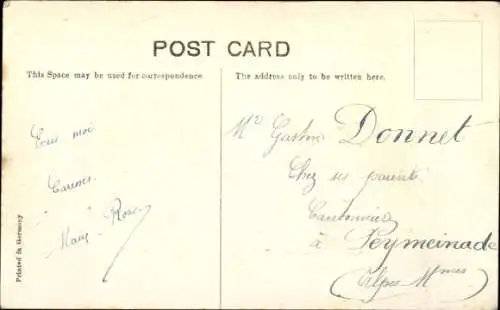 POST CARD
This Space may be used for correspondence.
The address only to be written here.
Ecris moi
Caresses.
Mary Rose
Mr Gaston Donnet
Chez ses parents
Cantonnier
à Peymeinade
(Alpes Mmes
Printed in Germany